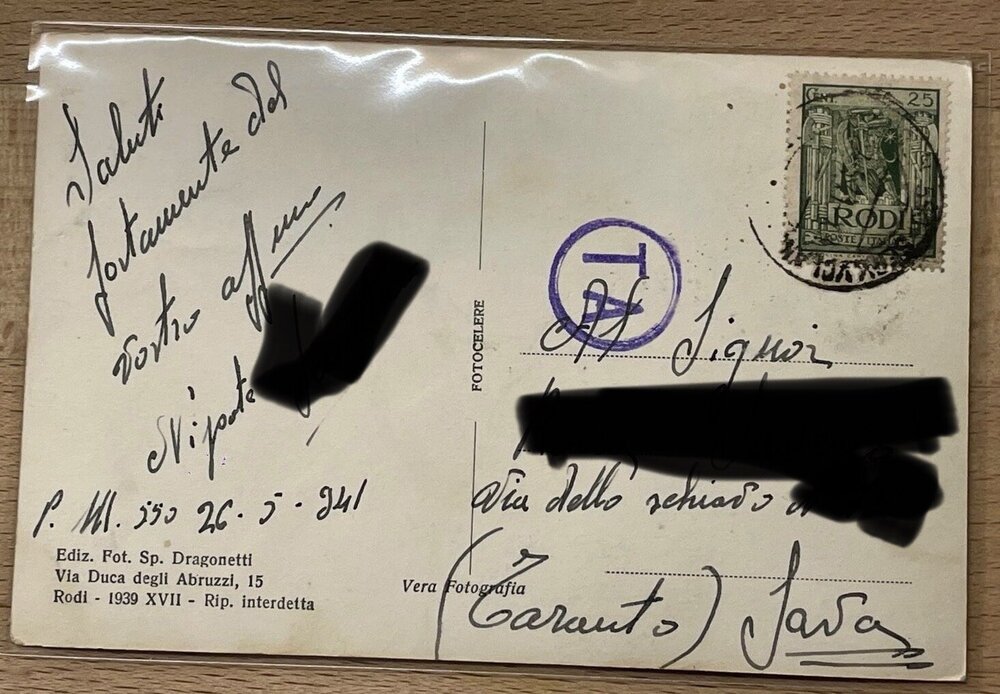 Saluti
fortamente dal
vostro aff mo
Nipote
P. M. 550 26-5-941
Ediz. Fot. Sp. Dragonetti
Via Duca degli Abruzzi, 15
Rodi - 1939 XVII - Rip. interdetta
FOTOCELERE
Vera Fotografia
CENT 25
RODI
POSTE ITALIANE
T A
Al Signor
Via dello schiavo
(Taranto) Sava